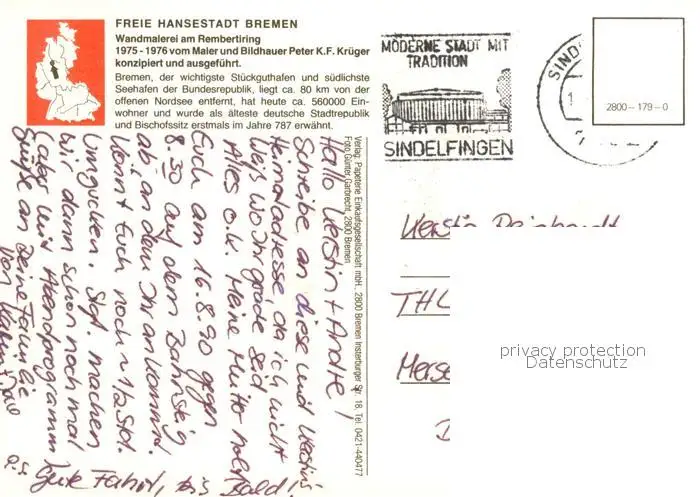 FREIE HANSESTADT BREMEN
Wandmalerei am Rembertiring
1975 - 1976 vom Maler und Bildhauer Peter K.F. Krüger
konzipiert und ausgeführt.
Bremen, der wichtigste Stückguthafen und südlichste
Seehafen der Bundesrepublik, liegt ca. 80 km von der
offenen Nordsee entfernt, hat heute ca. 560000 Ein-
wohner und wurde als älteste deutsche Stadtrepublik
und Bischofssitz erstmals im Jahre 787 erwähnt.
MODERNE STADT MIT
TRADITION
SINDELFINGEN
SIND
2800 – 179 – 0
Verlag: Papeterie Einkaufsgesellschaft mbH., 2800 Bremen Insterburger Str. 18, Tel. 0421-440477
Foto Günter Garbrecht, 2800 Bremen
Hallo Kerstin + André!
Schreibe an diese und Kerstins
Heimatadresse, da ich nicht
weis wo Ihr grade seid.
Alles o.k. Meine Mutter holt
Euch am 16.8.90 gegen
8.30 auf dem Bahnsteig
ab, an dem Ihr ankommt.
Könnt Euch noch ~ 1/2 Std.
Umgucken. Std. machen
wir dann schon noch mal
(aber mit Abendprogramm
Grüße an Deine Familie
Von
P.S. Gute Fahrt, bis Bald!
Kerstin Reinhardt
THL
Merse
D
privacy protection
Datenschutz